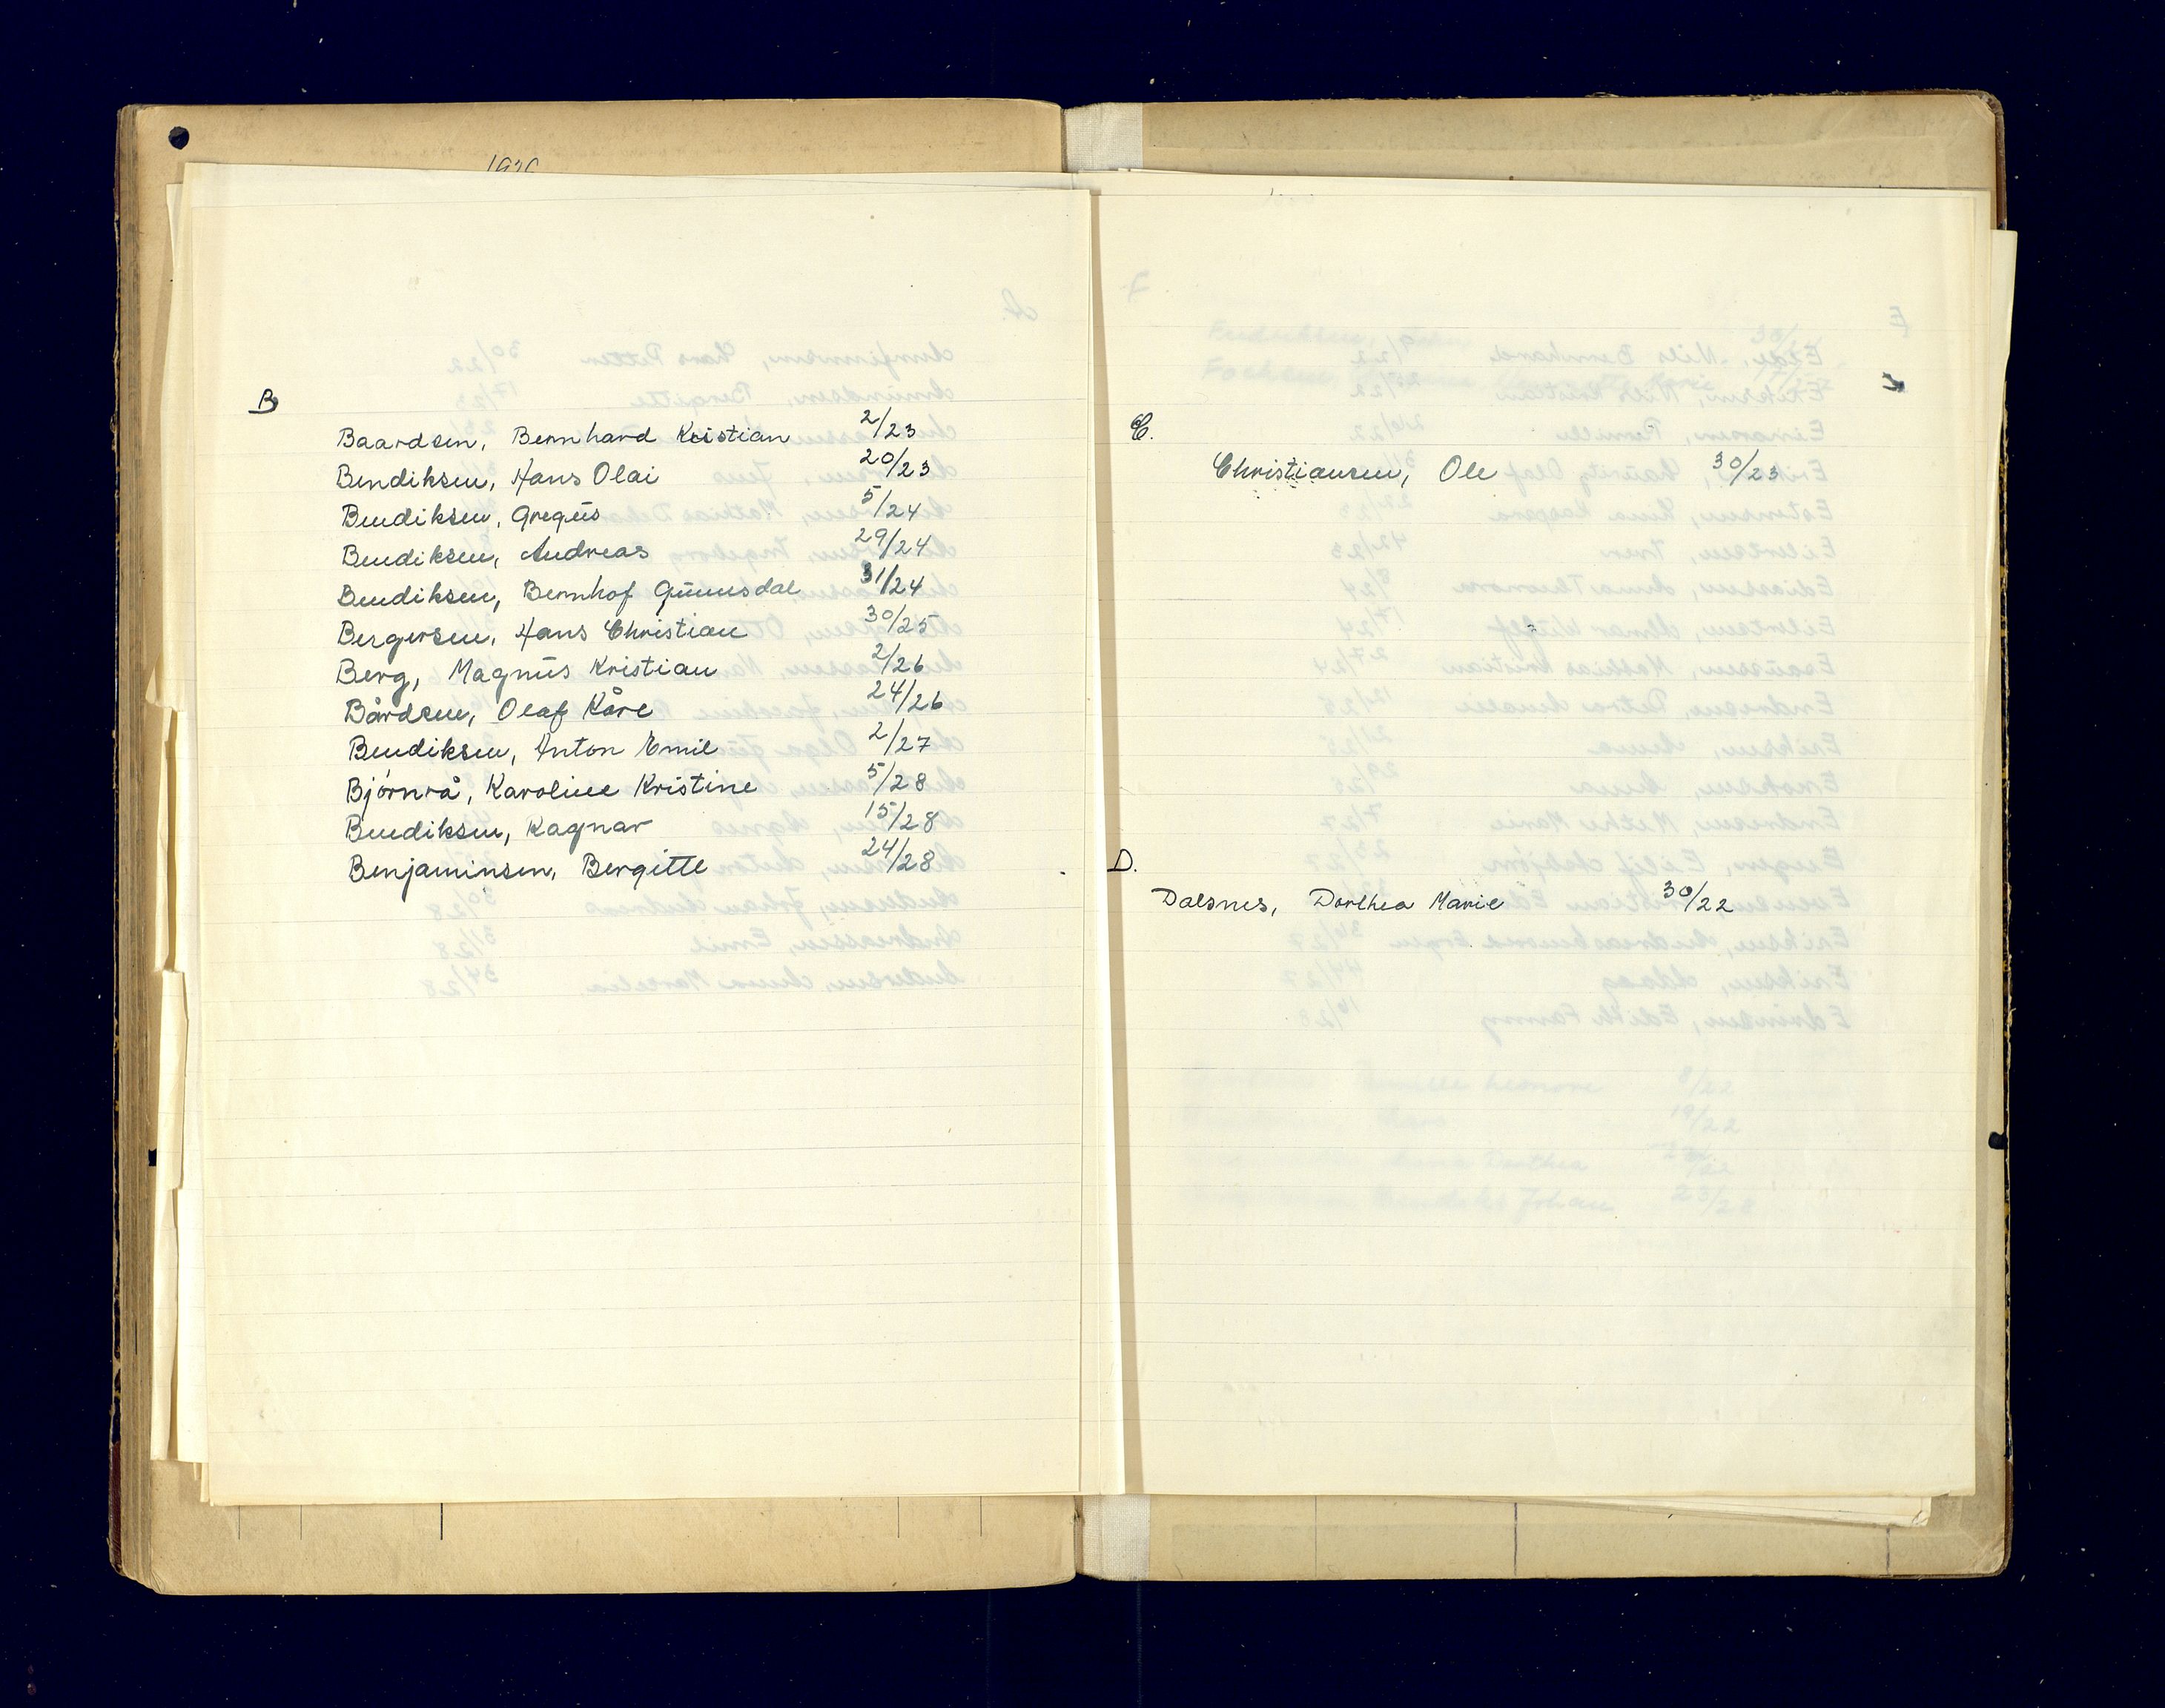 B
Baardsen, Bernhard Kristian 2/23
Bendiksen, Hans Olai 20/23
Bendiksen, Gregus 5/24
Bendiksen, Andreas 29/24
Bendiksen, Bernhof Gunnsdal 31/24
Bergersen, Hans Christian 30/25
Berg, Magnus Kristian 2/26
Bårdsen, Olaf Kåre 24/26
Bendiksen, Anton Emil 2/27
Bjørnrå, Karoline Kristine 5/28
Bendiksen, Ragnar 15/28
Benjaminsen, Bergitte 24/28
C.
Christiansen, Ole 30/23
D.
Dalsnes, Dorthea Marie 30/22